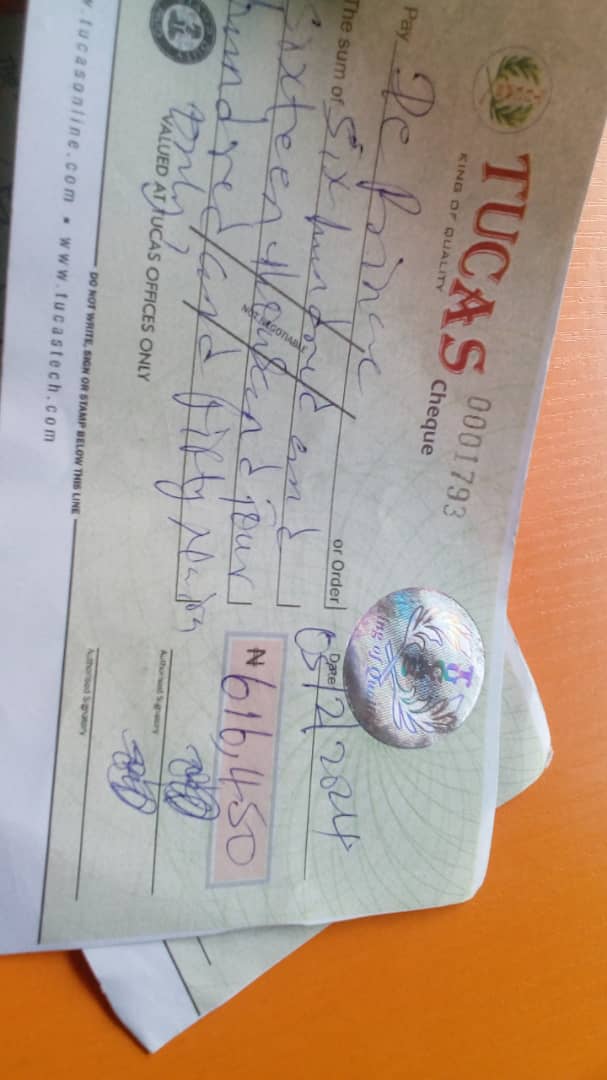 TUCAS
KING OF QUALITY
0001793
Cheque
Pay De Prince
or Order
The sum of Six hundred and
Sixteen thousand four
hundred and fifty Naira
only
NOT NEGOTIABLE
Date 05/12/2024
₦616,450
VALUED AT TUCAS OFFICES ONLY
Authorised Signatory
Authorised Signatory
DO NOT WRITE, SIGN OR STAMP BELOW THIS LINE
.tucasonline.com • www.tucastech.com